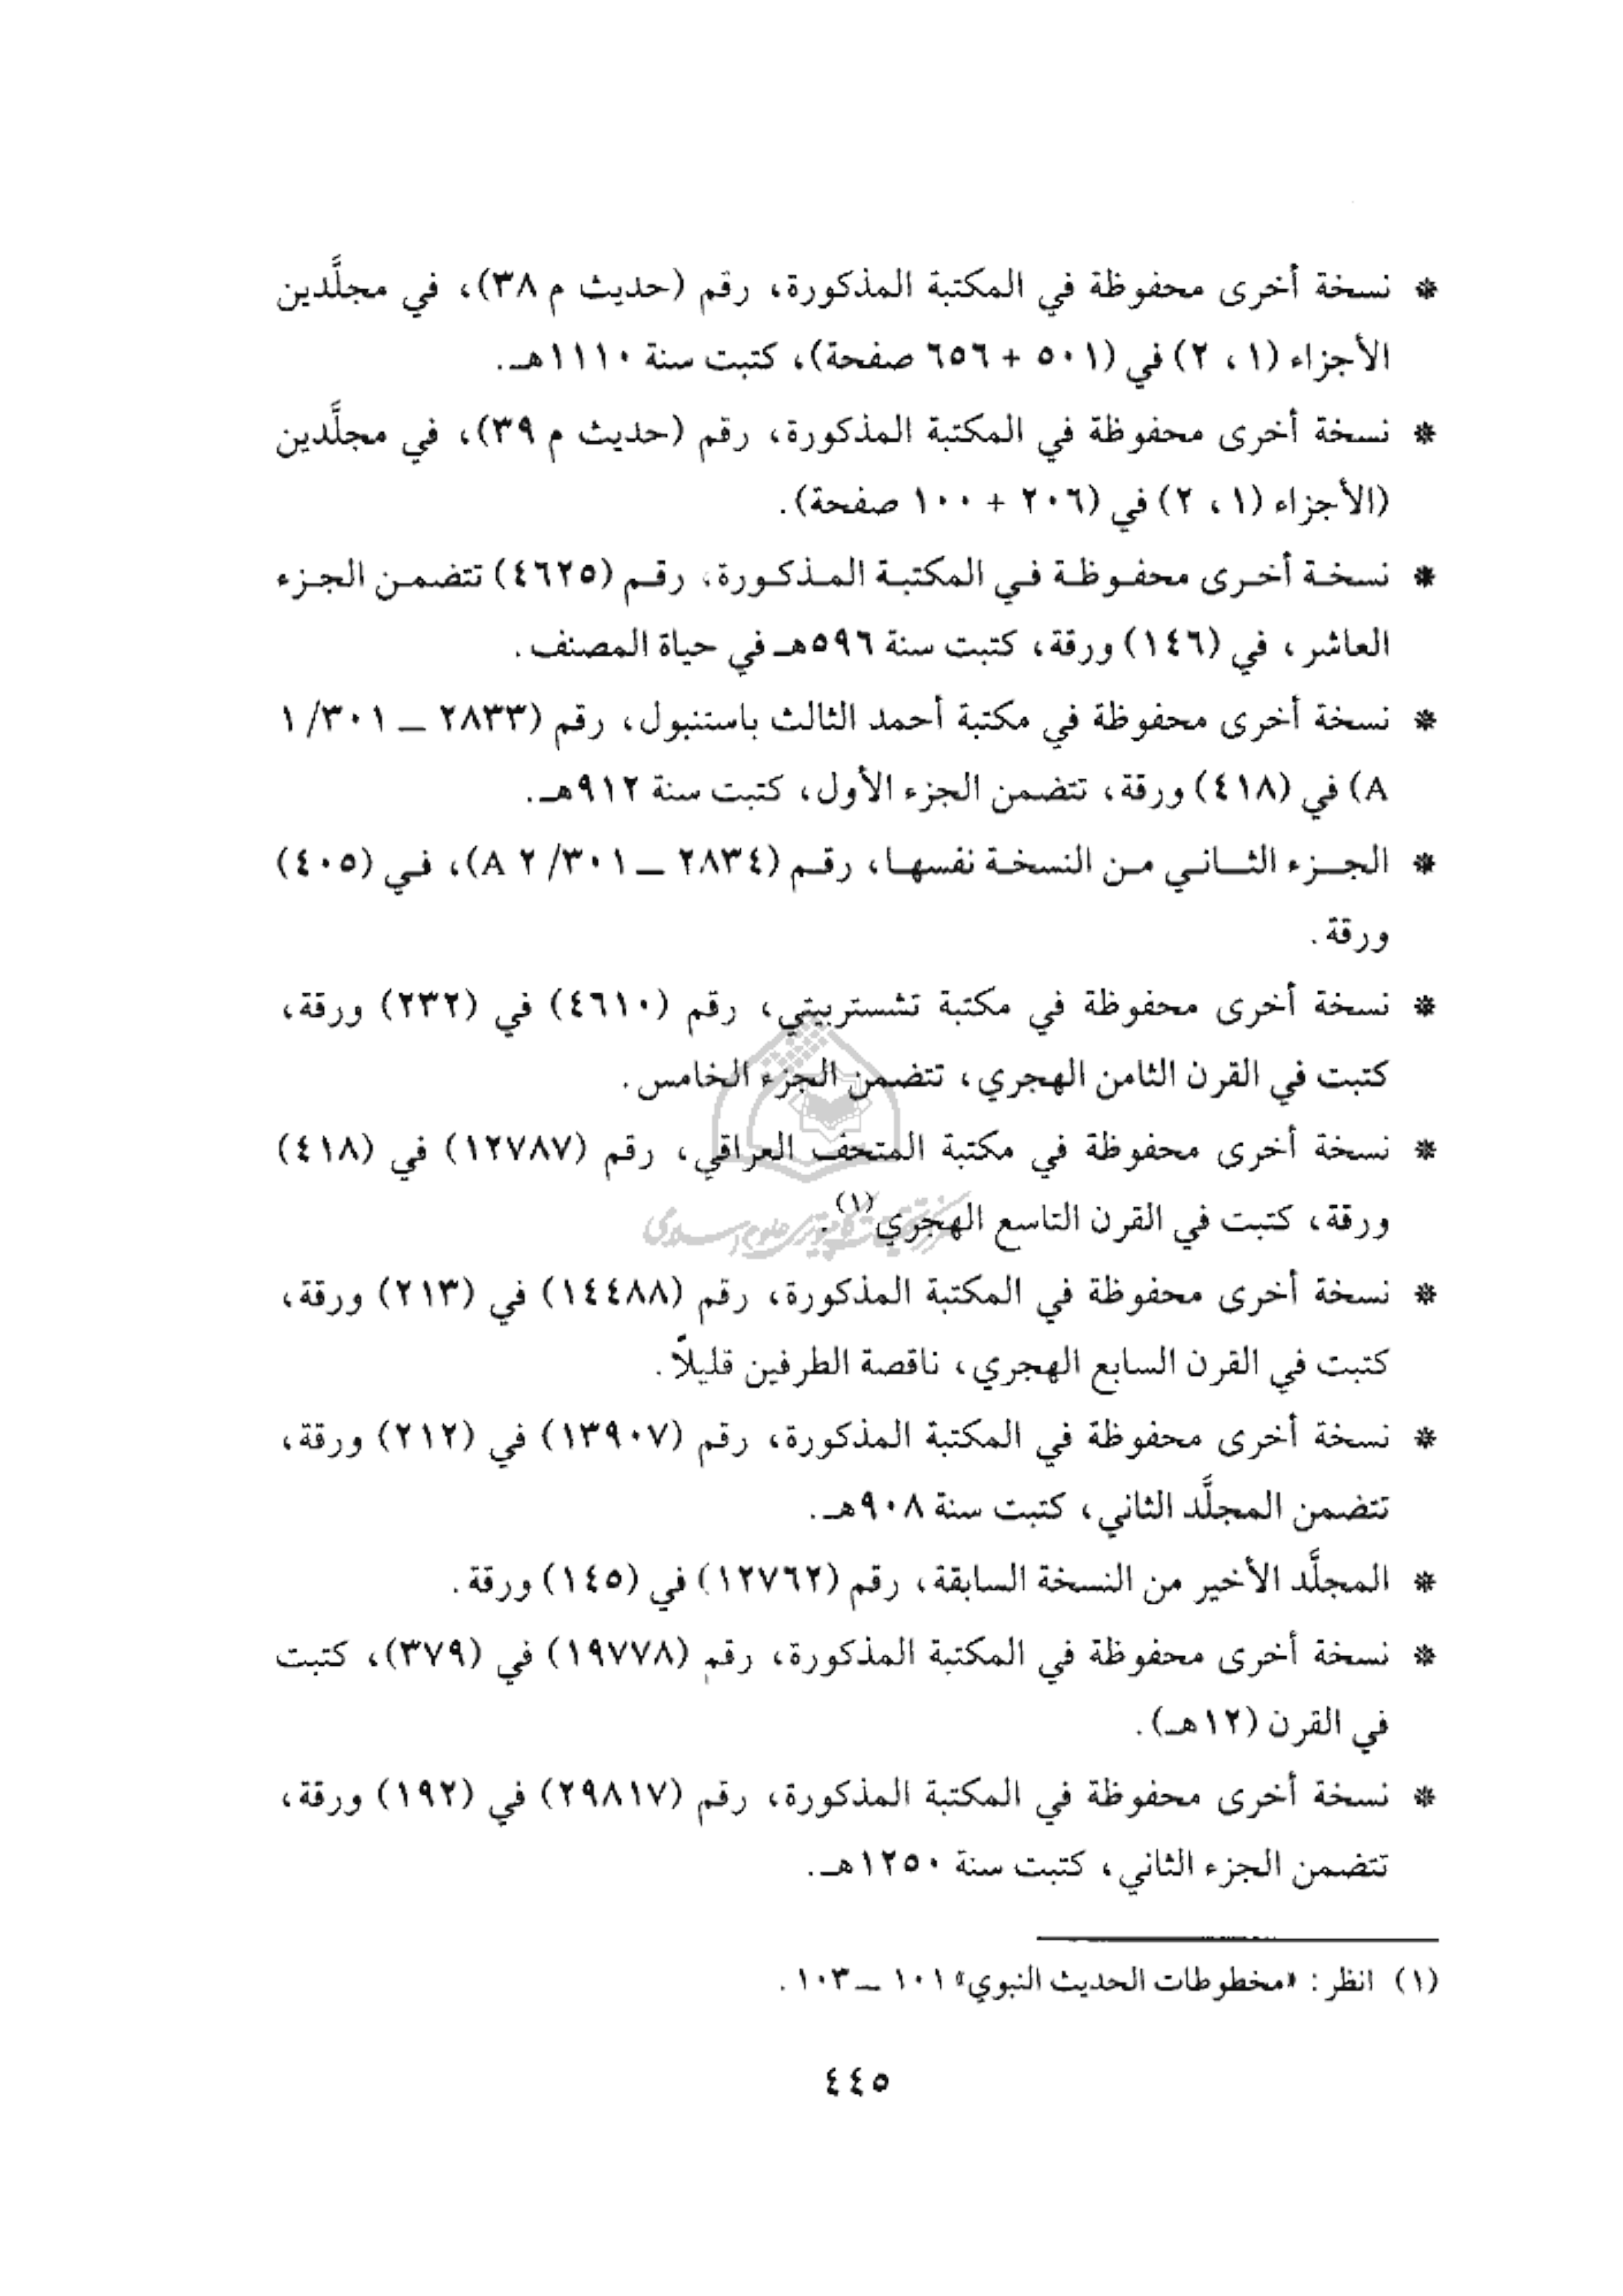 * نسخة أخرى محفوظة في المكتبة المذكورة، رقم (حديث م ٣٨)، في مجلَّدين
الأجزاء (١، ٢) في (٥٠١ + ٦٥٦ صفحة)، كتبت سنة ١١١٠هـ.
* نسخة أخرى محفوظة في المكتبة المذكورة، رقم (حديث م ٣٩)، في مجلَّدين
(الأجزاء (١، ٢) في (٢٠٦ + ١٠٠ صفحة).
* نسخة أخرى محفوظة في المكتبة المذكورة، رقم (٤٦٢٥) تتضمن الجزء
العاشر، في (١٤٦) ورقة، كتبت سنة ٥٩٦هـ في حياة المصنف.
* نسخة أخرى محفوظة في مكتبة أحمد الثالث باستنبول، رقم (٢٨٣٣ — ٣٠١/ ١
A) في (٤١٨) ورقة، تتضمن الجزء الأول، كتبت سنة ٩١٢هـ.
* الجزء الثاني من النسخة نفسها، رقم (٢٨٣٤ — ٣٠١/ ٢ A)، في (٤٠٥)
ورقة.
* نسخة أخرى محفوظة في مكتبة تشستربيتي، رقم (٤٦١٠) في (٢٣٢) ورقة،
كتبت في القرن الثامن الهجري، تتضمن الجزء الخامس.
* نسخة أخرى محفوظة في مكتبة المتحف العراقي، رقم (١٢٧٨٧) في (٤١٨)
ورقة، كتبت في القرن التاسع الهجري(١).
* نسخة أخرى محفوظة في المكتبة المذكورة، رقم (١٤٤٨٨) في (٢١٣) ورقة،
كتبت في القرن السابع الهجري، ناقصة الطرفين قليلاً.
* نسخة أخرى محفوظة في المكتبة المذكورة، رقم (١٣٩٠٧) في (٢١٢) ورقة،
تتضمن المجلَّد الثاني، كتبت سنة ٩٠٨هـ.
* المجلَّد الأخير من النسخة السابقة، رقم (١٢٧٦٢) في (١٤٥) ورقة.
* نسخة أخرى محفوظة في المكتبة المذكورة، رقم (١٩٧٧٨) في (٣٧٩)، كتبت
في القرن (١٢هـ).
* نسخة أخرى محفوظة في المكتبة المذكورة، رقم (٢٩٨١٧) في (١٩٢) ورقة،
تتضمن الجزء الثاني، كتبت سنة ١٢٥٠هـ.
(١) انظر: «مخطوطات الحديث النبوي» ١٠١ — ١٠٣.
٤٤٥